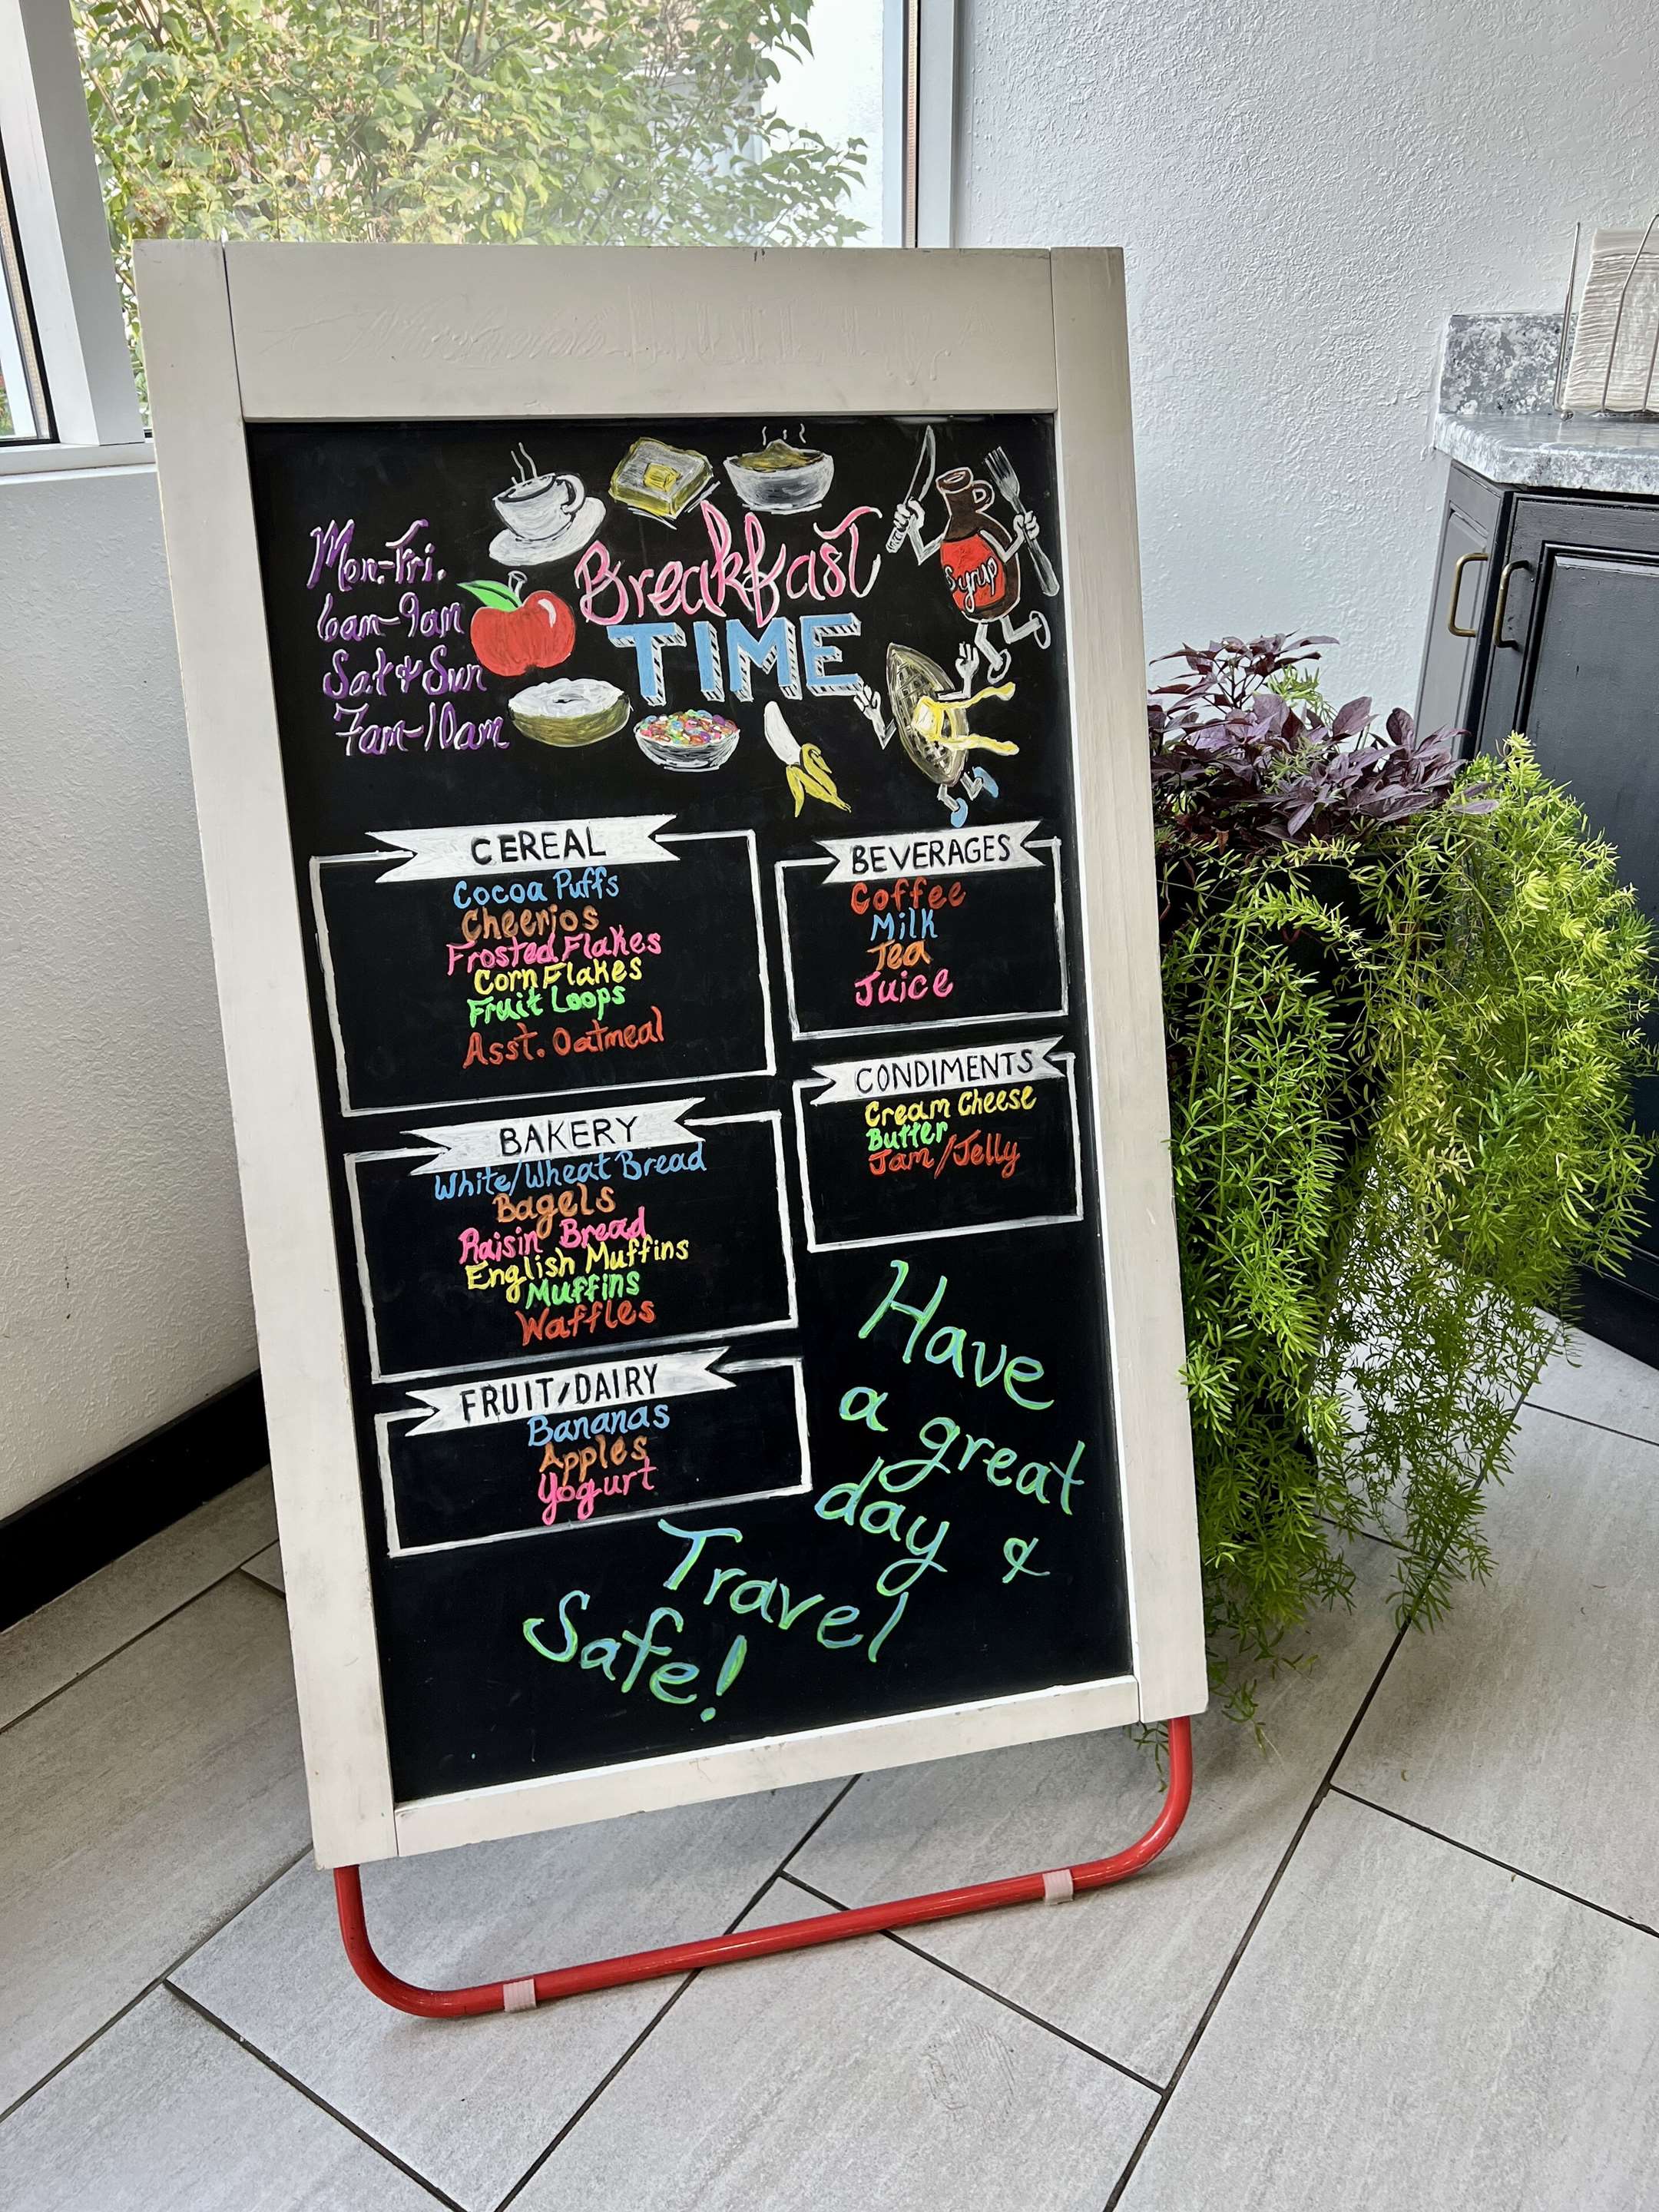 Mon.-Fri.
6am-9am
Sat & Sun
7am-10am
Breakfast
TIME
Syrup
CEREAL
Cocoa Puffs
Cheerios
Frosted Flakes
Corn Flakes
Fruit Loops
Asst. Oatmeal
BAKERY
White/Wheat Bread
Bagels
Raisin Bread
English Muffins
Muffins
Waffles
FRUIT/DAIRY
Bananas
Apples
Yogurt
BEVERAGES
Coffee
Milk
Tea
Juice
CONDIMENTS
Cream Cheese
Butter
Jam/Jelly
Have
a great
day &
Travel
Safe!